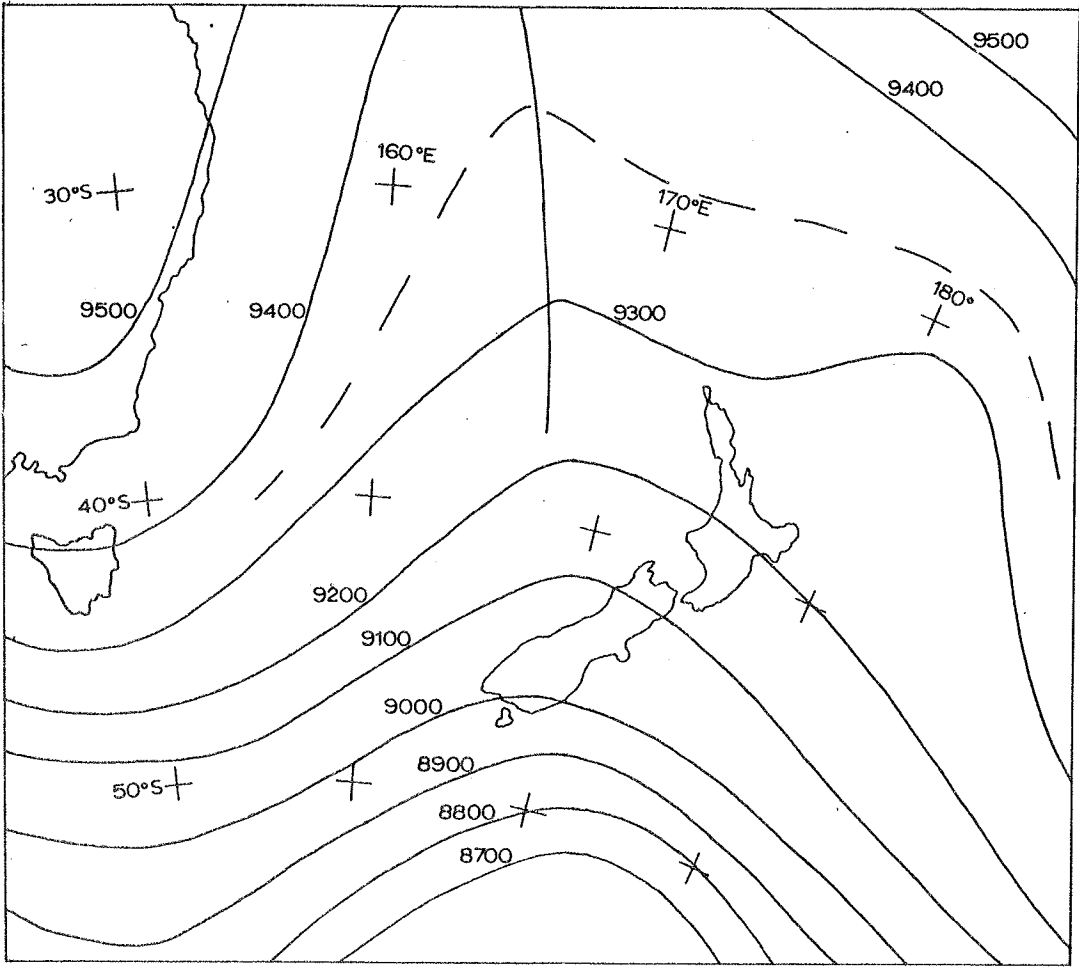 9500
9400
160°E
30°S
170°E
180°
9500
9400
9300
40°S
9200
9100
9000
50°S
8900
8800
8700